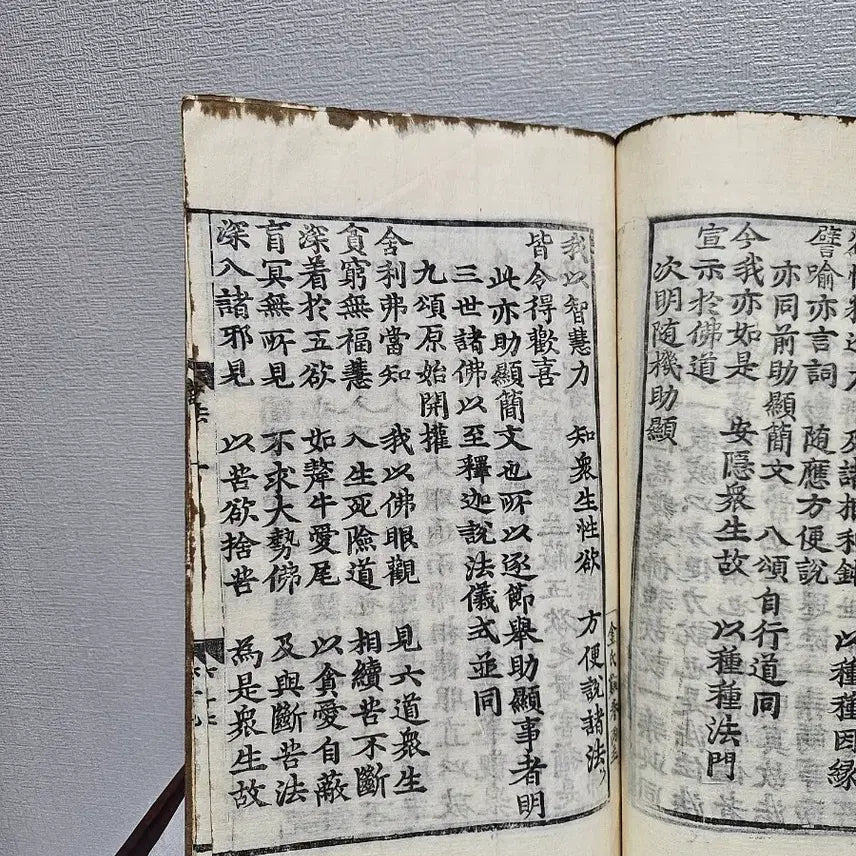 及諸根利鈍 以種種因緣
譬喻亦言詞 隨應方便說
亦同前助顯簡文 八頌自行道同
今我亦如是 安隱衆生故 以種種法門
宣示於佛道
次明隨機助顯
我以智慧力 知衆生性欲 方便說諸法
皆令得歡喜
此亦助顯簡文也所以逐節舉助顯事者明
三世諸佛以至釋迦說法儀式並同
九頌原始開權
舍利弗當知 我以佛眼觀 見六道衆生
貧窮無福慧 入生死險道 相續苦不斷
深着於五欲 如犛牛愛尾 以貪愛自蔽
盲冥無所見 不求大勢佛 及與斷苦法
深入諸邪見 以苦欲捨苦 為是衆生故